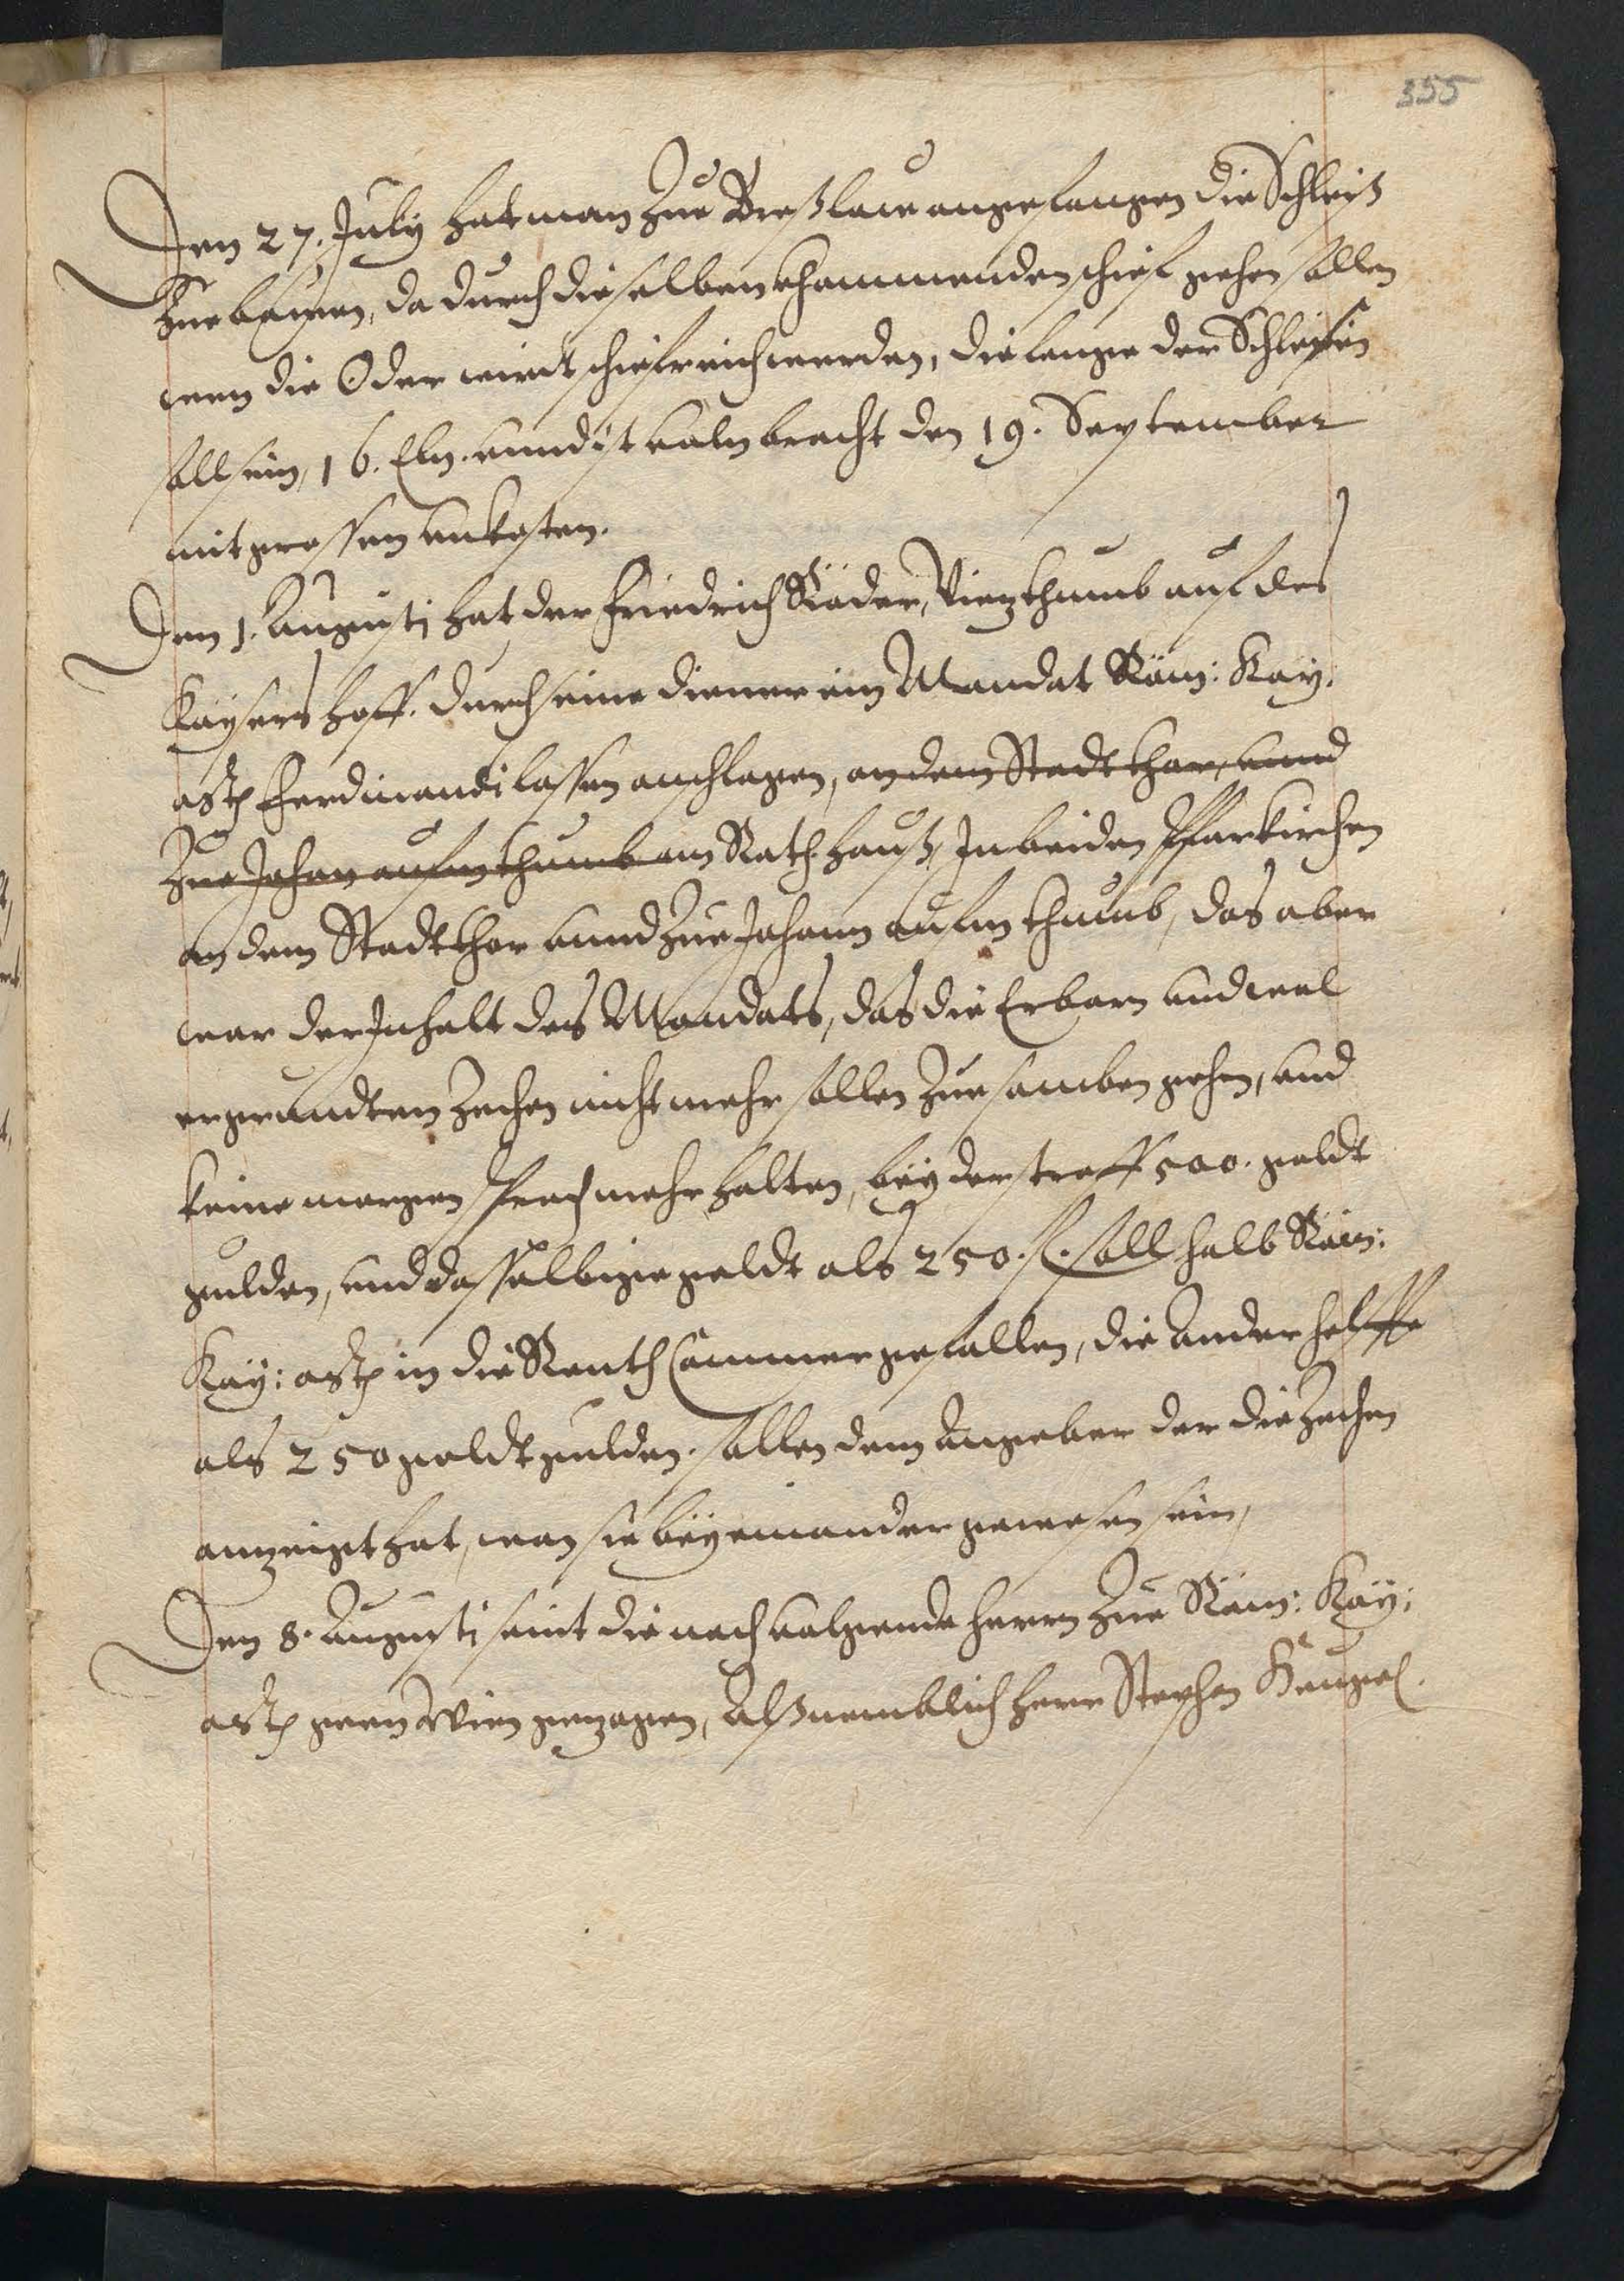 355
Den 27. July hat man zue Breßlaw angefangen die Schleiß
zue bawen, da durch dieselben khommenden schief gehen sollen
wen die Oder wirdt schiefreich werden, die lenge der Schleysen
soll sein, 16. Eln. unnd ist voln bracht den 19. September
mit grossen unkosten.
Den 1. Augusti hat der Friedrich Räder, Vietzthumb auf des
Kaysers hoff. durch seine diener ein Mandat Röm: Kay:
Ferdinandi lassen anschlagen, an dem Stadt thor, unnd
zue Johan aufm thumb am Rath hauß, In beiden Pfarkirchen
an dem Stadt thor unnd zue Johann aufm thumb, das aber
war der Inhalt des Mandats, das die Erbarn und
Zechen nicht mehr sollen zue samben gehen, und
keine morgen sprach mehr halten, bey der straff 500. goldt
gulden, und dasselbige geldt als 250. fl. soll halb Röm:
Kay: in die Renth Cammer gefallen, die Ander helffte
als 250 goldt gulden. sollen dem Angeber der die Zechen
anzeigt hat, wan sie bey einander gewesen sein,
Den 8. Augusti seint die nach volgende herrn zue Röm: Kay:
geen Wien gezogen, Alß nemblich herr Stephan